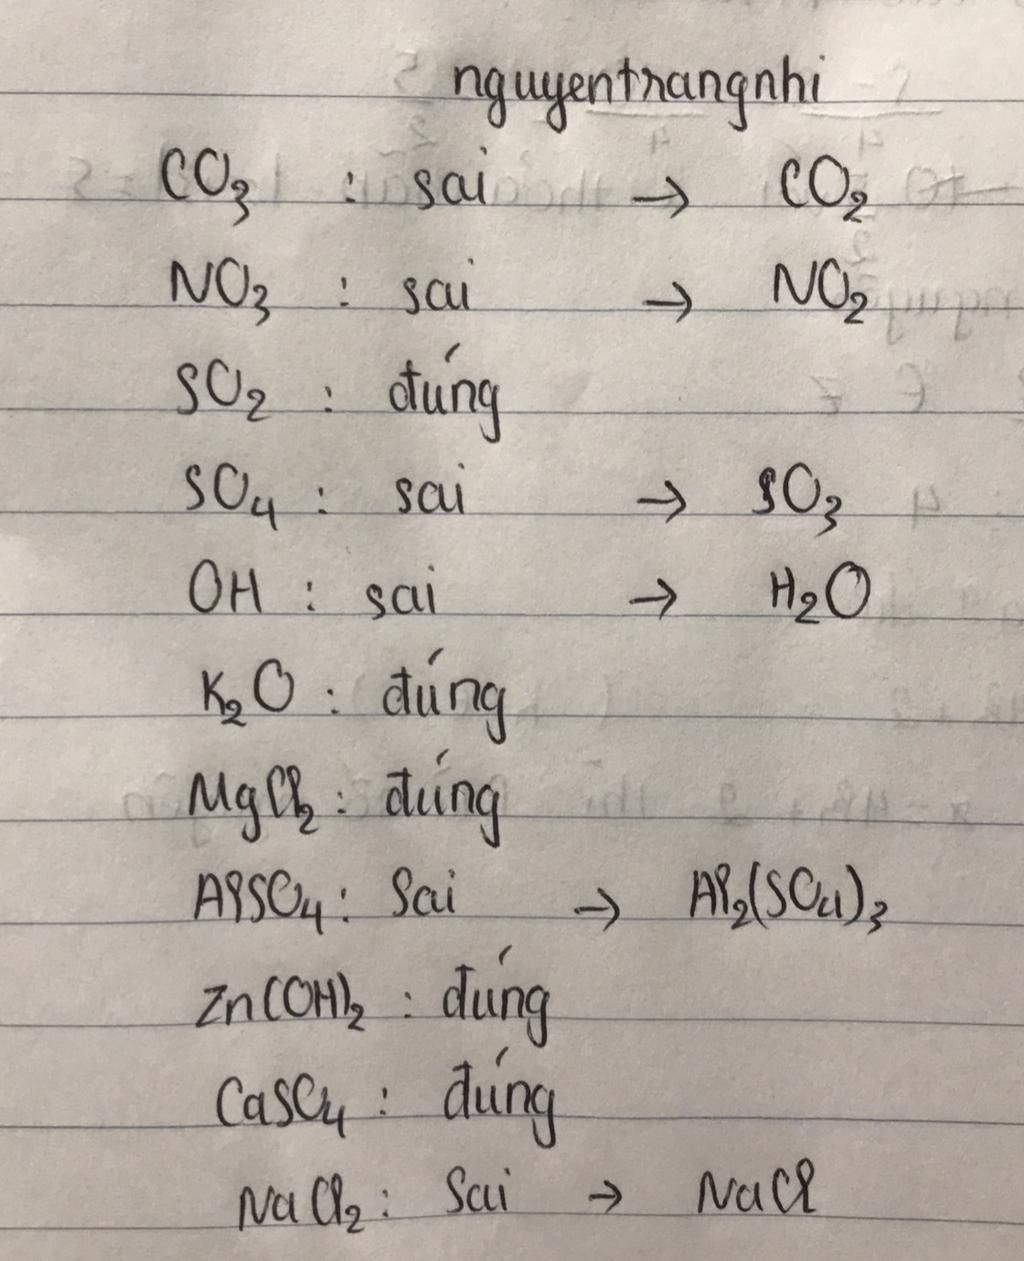 nguyentrangnhi
CO₃ : sai → CO₂
NO₃ : sai → NO₂
SO₂ : đúng
SO₄ : sai → SO₃
OH : sai → H₂O
K₂O : đúng
MgCl₂ : đúng
AlSO₄ : Sai → Al₂(SO₄)₃
Zn(OH)₂ : đúng
CaSO₄ : đúng
NaCl₂ : Sai → NaCl